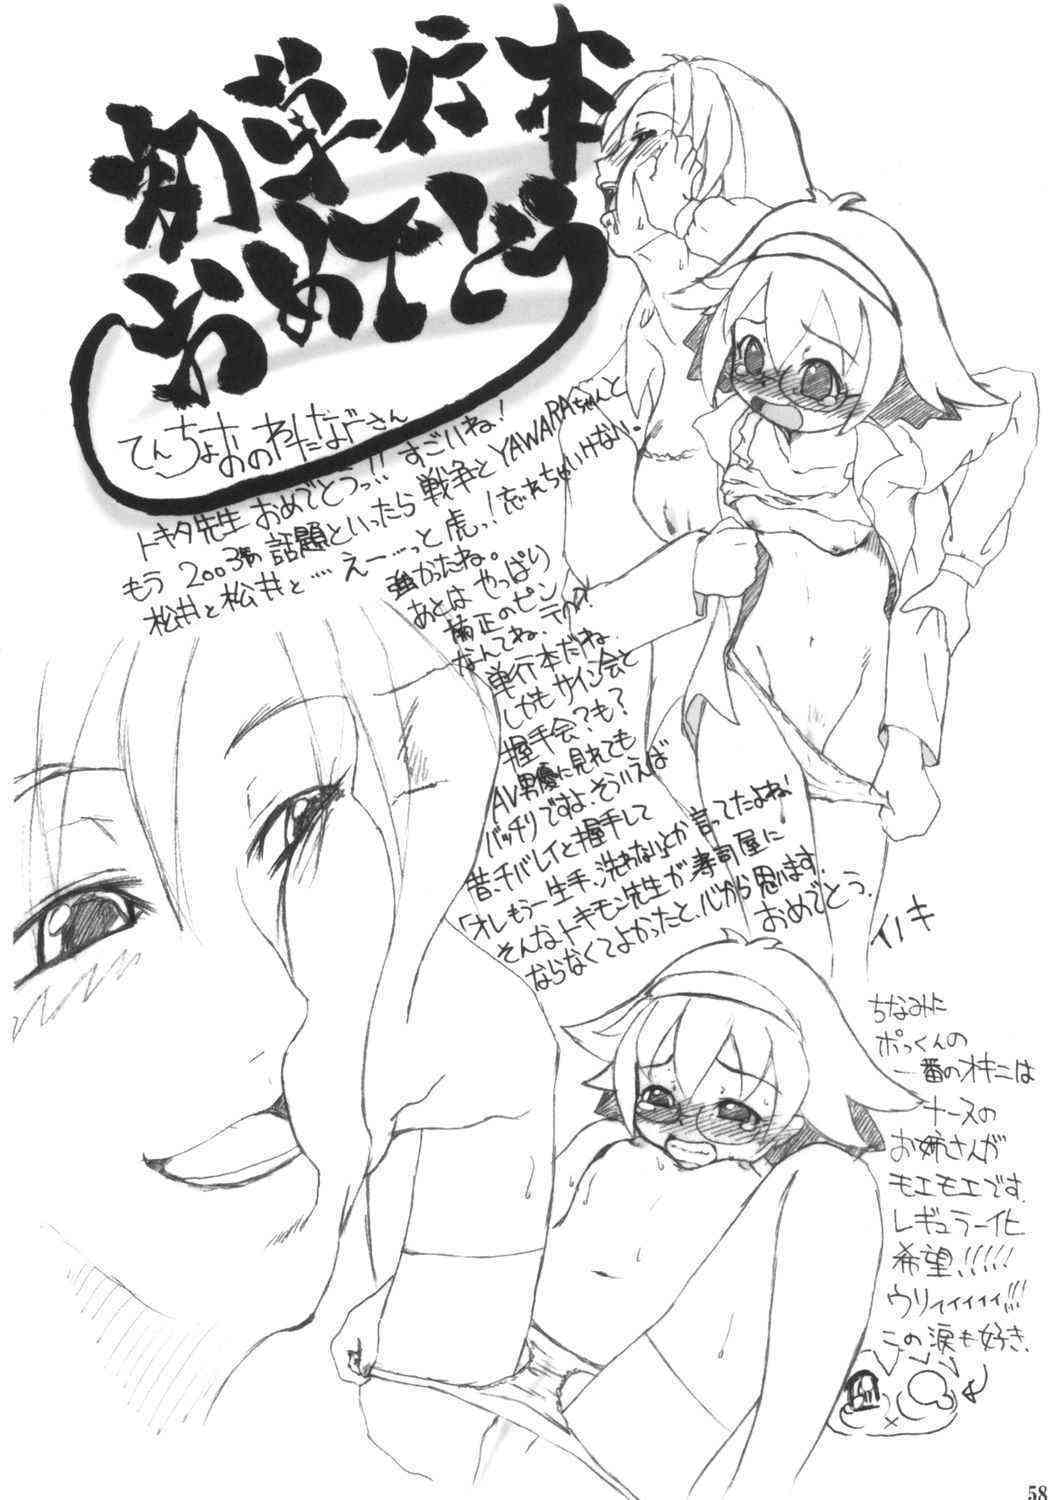 初単行本
おめでとう
てんちょおのわたなべさん
トキタ先生おめでとうっ!!すごいね!
もう2003年の話題といったら戦争とYAWARAちゃんと
松井と松井と…えーっと虎っ!忘れちゃいけない。
強かったね。
あとはやっぱり
単行本だね
しかもサイン会と
握手会?も?
AV男優に見れても
バッチリですよ。そういえば
昔、チバレイと握手して
「オレもう一生手、洗わない」とか言ってたよね
そんなトキモン先生が寿司屋に
ならなくてよかったと、心から思います。
おめでとう。
イノキ
ちなみに
ボっくんの
一番のオキニは
ナースの
お姉さんが
モエモエです。
レギュラー化
希望!!!!!
ウリィィィィィ!!!
この涙も好き。
58